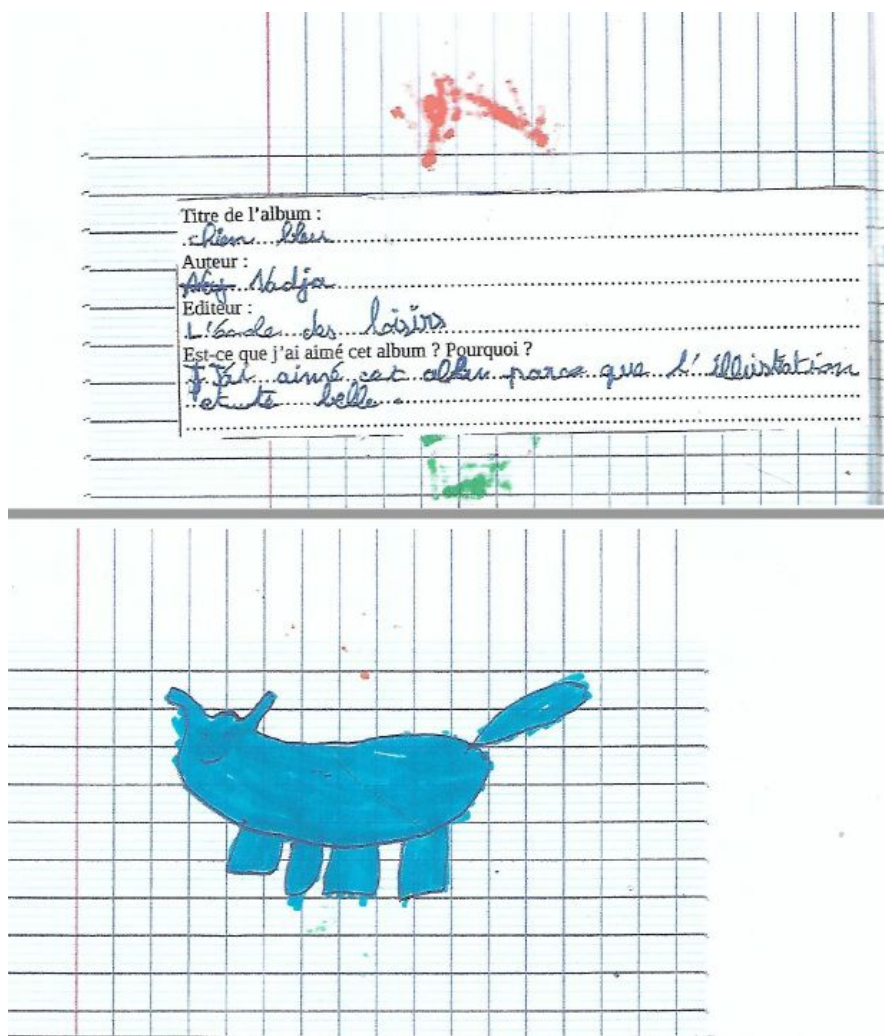 Titre de l'album :
chien bleu
Auteur :
Nadja
Editeur :
L'école des loisirs
Est-ce que j'ai aimé cet album ? Pourquoi ?
J'ai aimé cet album parce que l'illustration
et belle.